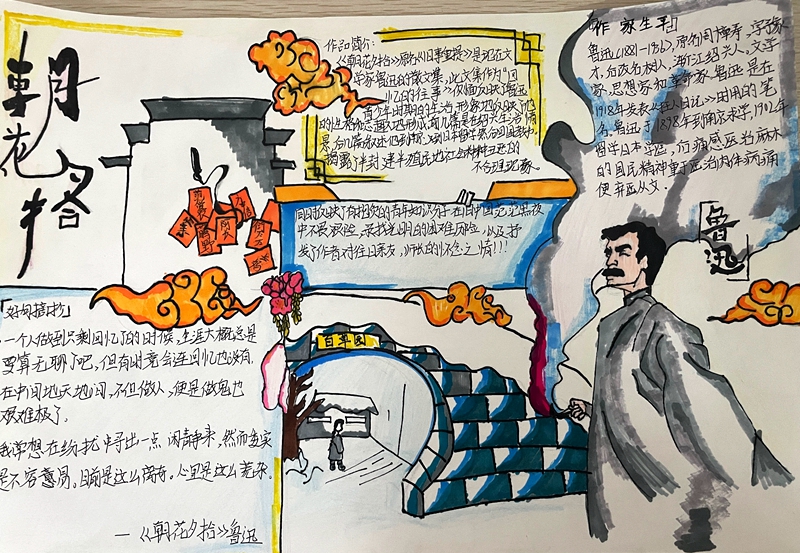 朝花夕拾
作品简介:
《朝花夕拾》原名《旧事重提》是记在文
学家鲁迅的散文集,此文集作为"回
忆的往事">仅仅反映鲁迅
青少年时期的生活,形象地反映了他
的性格和志趣的形成,前几篇是在绍兴生活情
景,后几篇叙述他到南京,到日本留学然后回国教书,
揭露了半封建半殖民地社会种种丑恶的
不合理现象。
同时反映了有抱负的青年知识分子在旧中国茫茫黑夜
中不畏艰险,寻找光明的困难历程,以及抒
发了作者对往日亲友,师长的怀念之情!!!
作家生平
鲁迅(1881-1936),原名周樟寿,字豫
才,后改名树人,浙江绍兴人,文学
家,思想家和革命家,鲁迅是在
1918年发表《狂人日记》时用的笔
名,鲁迅于1898年到南京求学,1902年
留学日本学医,后痛感医治麻木
的国民精神重于医治肉体病痛
便弃医从文.
鲁迅
百草园
「好句摘抄」
一个人做到只剩回忆了的时候,生涯大概总是
要算无聊了吧,但有时竟会连回忆也没有。
在中国地天地间,不但做人,便是做鬼也
艰难极了。
我常想在纷扰中寻出一点闲静来,然而委实
是不容易。目前是这么离奇。心里是这么芜杂。
—《朝花夕拾》鲁迅